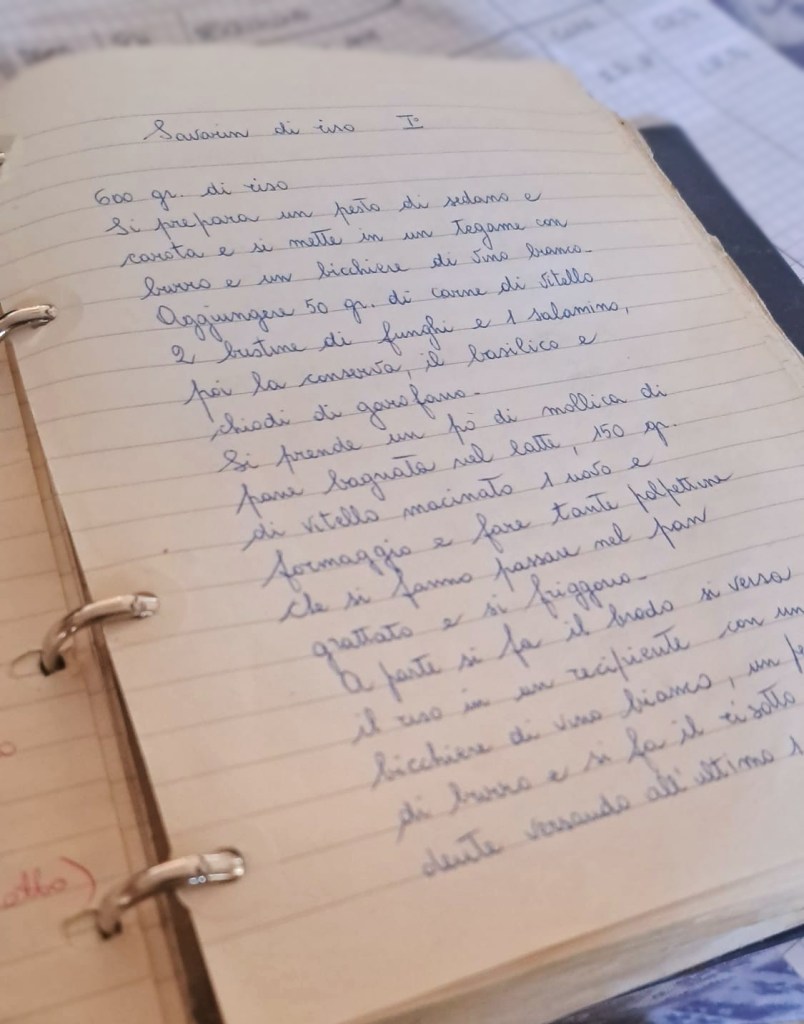 Savarin di riso I°
600 gr. di riso
Si prepara un pesto di sedano e
carota e si mette in un tegame con
burro e un bicchiere di vino bianco.
Aggiungere 50 gr. di carne di vitello
2 bustine di funghi e 1 salamino,
poi la conserva, il basilico e
chiodi di garofano.
Si prende un pò di mollica di
pane bagnata nel latte, 150 gr.
di vitello macinato 1 uovo e
formaggio e fare tante polpettine
che si fanno passare nel pan
grattato e si friggono.
A parte si fa il brodo si versa
il riso in un recipiente con un
bicchiere di vino bianco, un
di burro e si fa il risotto
dente versando all'ultimo